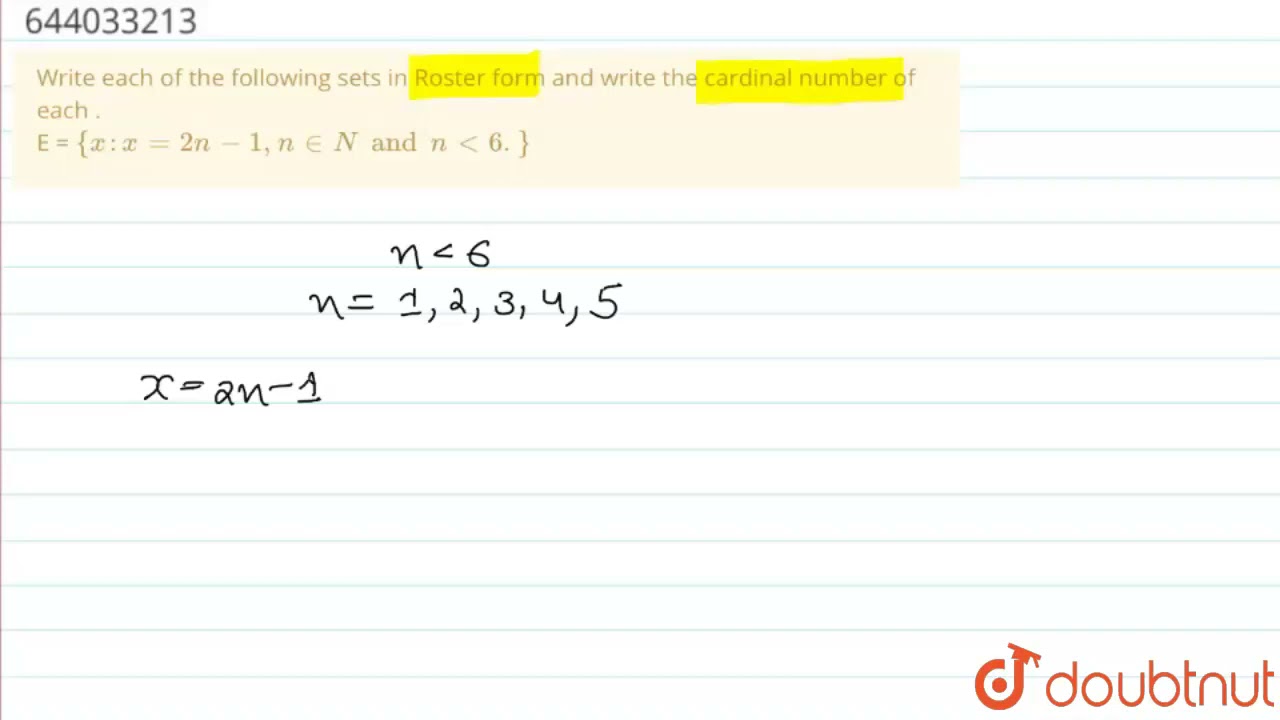 644033213
Write each of the following sets in Roster form and write the cardinal number of
each .
E = {x : x = 2n − 1, n ∈ N and n < 6. }
n < 6
n = 1, 2, 3, 4, 5
x = 2n − 1
doubtnut